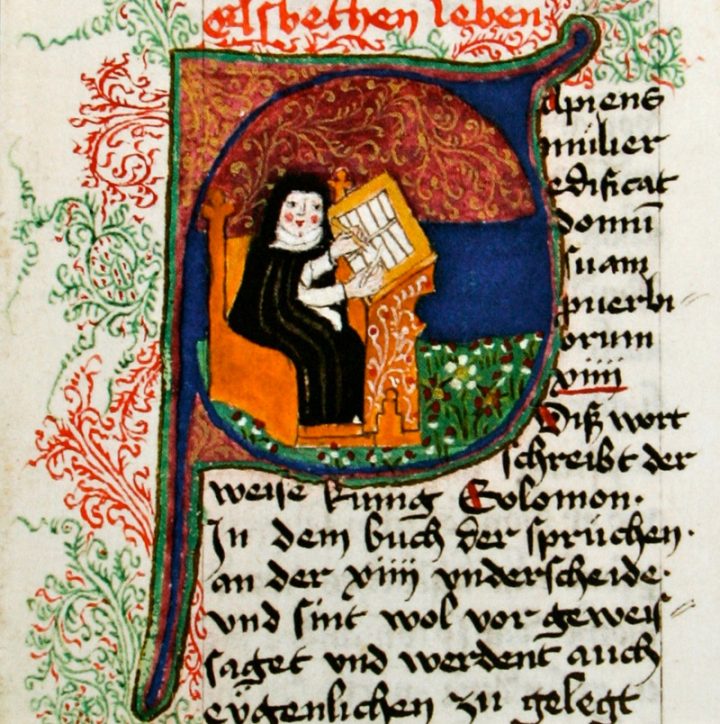 elsbethen leben
apiens
mulier
edificat
domū
suam
puerbi
orum
xiiii
Diß wort
schreibt der
weise kunig Salomon.
In dem buch der spruchen.
an der xiiii vnderscheide.
vnd sint wol vor geweis
saget vnd werdent auch
eygenlichen zu gelegt